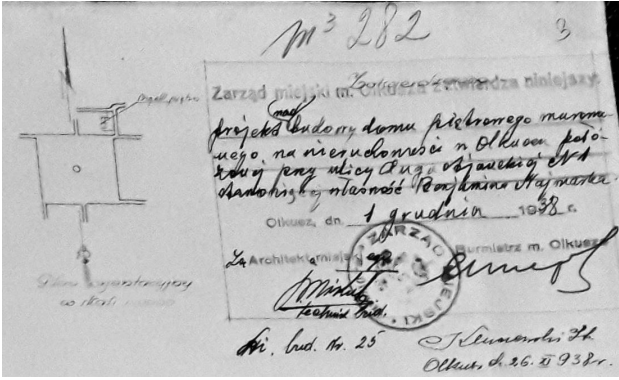 m³ 282
3
Zarząd miejski m. Olkusza zatwierdza niniejszy
projekt nadbudowy domu piętrowego murowa-
nego, na nieruchomości w Olkuszu poło-
żonej przy ulicy Augustjańskiej № 1
stanowiącej własność Benjamina Najmarka.
Olkusz, dn. 1 grudnia 1938 r.
Za Architekta miejskiego Burmistrz m. Olkusza
ZARZĄD MIEJSKI
technik bud.
bud. Nr. 25
Plan sytuacyjny
w skali
Olkusz d. 26. XI 938 r.